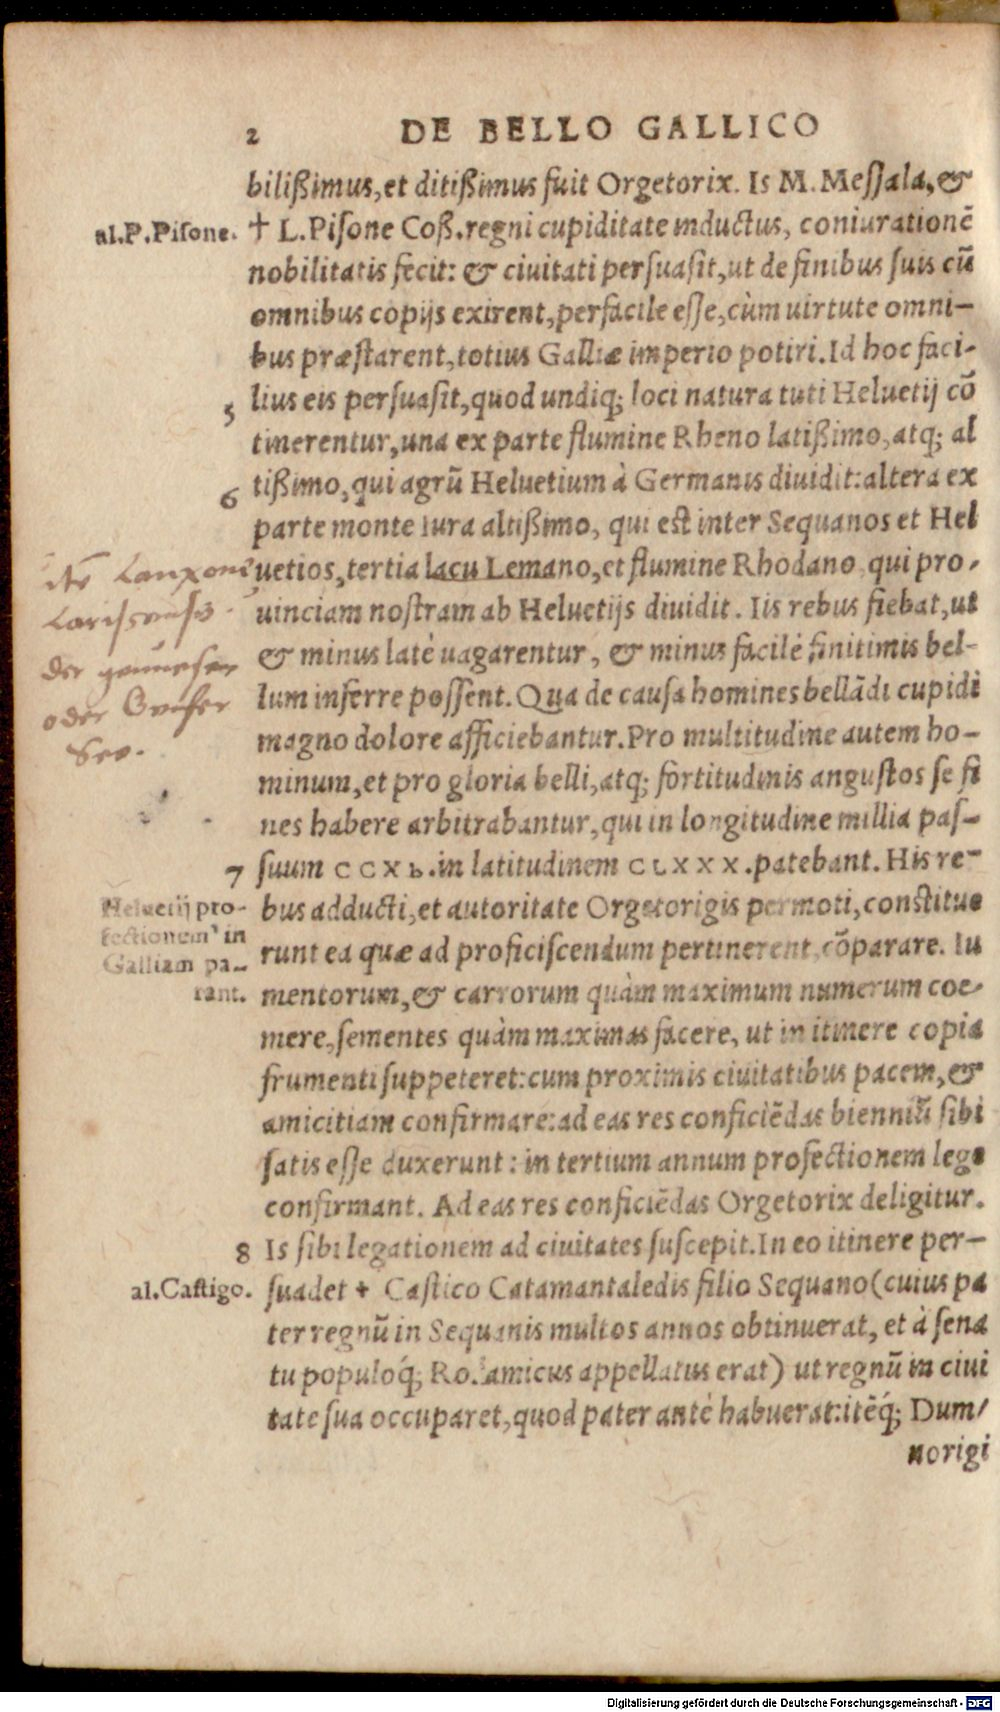 2 DE BELLO GALLICO
bilißimus, et ditißimus fuit Orgetorix. Is M. Meſſala, &
al. P. Piſone. † L. Piſone Coß. regni cupiditate inductus, coniurationē
nobilitatis fecit: & ciuitati perſuaſit, ut de finibus ſuis cū
omnibus copijs exirent, perfacile eſſe, cùm uirtute omni-
bus præſtarent, totius Galliæ imperio potiri. Id hoc faci-
5 lius eis perſuaſit, quod undiq; loci natura tuti Heluetij cō
tinerentur, una ex parte flumine Rheno latißimo, atq; al
6 tißimo, qui agrū Heluetium à Germanis diuidit: altera ex
parte monte Iura altißimo, qui est inter Sequanos et Hel
uetios, tertia lacu Lemano, et flumine Rhodano qui pro-
uinciam noſtram ab Heluetijs diuidit. Iis rebus fiebat, ut
& minus latè uagarentur, & minus facilè finitimis bel-
lum inferre poſſent. Qua de cauſa homines bellādi cupidi
magno dolore afficiebantur. Pro multitudine autem ho-
minum, et pro gloria belli, atq; fortitudinis anguſtos ſe fi
nes habere arbitrabantur, qui in longitudine millia paſ-
7 ſuum CCXL. in latitudinem CLXXX. patebant. His re-
bus adducti, et autoritate Orgetorigis permoti, constitue
runt ea quæ ad proficiſcendum pertinerent, cōparare. Iu
mentorum, & carrorum quàm maximum numerum coe-
mere, ſementes quàm maximas facere, ut in itinere copia
frumenti ſuppeteret: cum proximis ciuitatibus pacem, &
amicitiam confirmare: ad eas res conficiēdas bienniū ſibi
ſatis eſſe duxerunt: in tertium annum profectionem lege
confirmant. Ad eas res conficiēdas Orgetorix deligitur.
8 Is ſibi legationem ad ciuitates ſuſcepit. In eo itinere per-
al. Caſtigo. ſuadet + Caſtico Catamantaledis filio Sequano (cuius pa
ter regnū in Sequanis multos annos obtinuerat, et à ſena
tu populoq́; Ro. amicus appellatus erat) ut regnū in ciui
tate ſua occuparet, quod pater antè habuerat: itēq́; Dum-
norigi
oder
Heluetij pro-
fectionem in
Galliam pa-
rant.
Digitalisierung gefördert durch die Deutsche Forschungsgemeinschaft - DFG